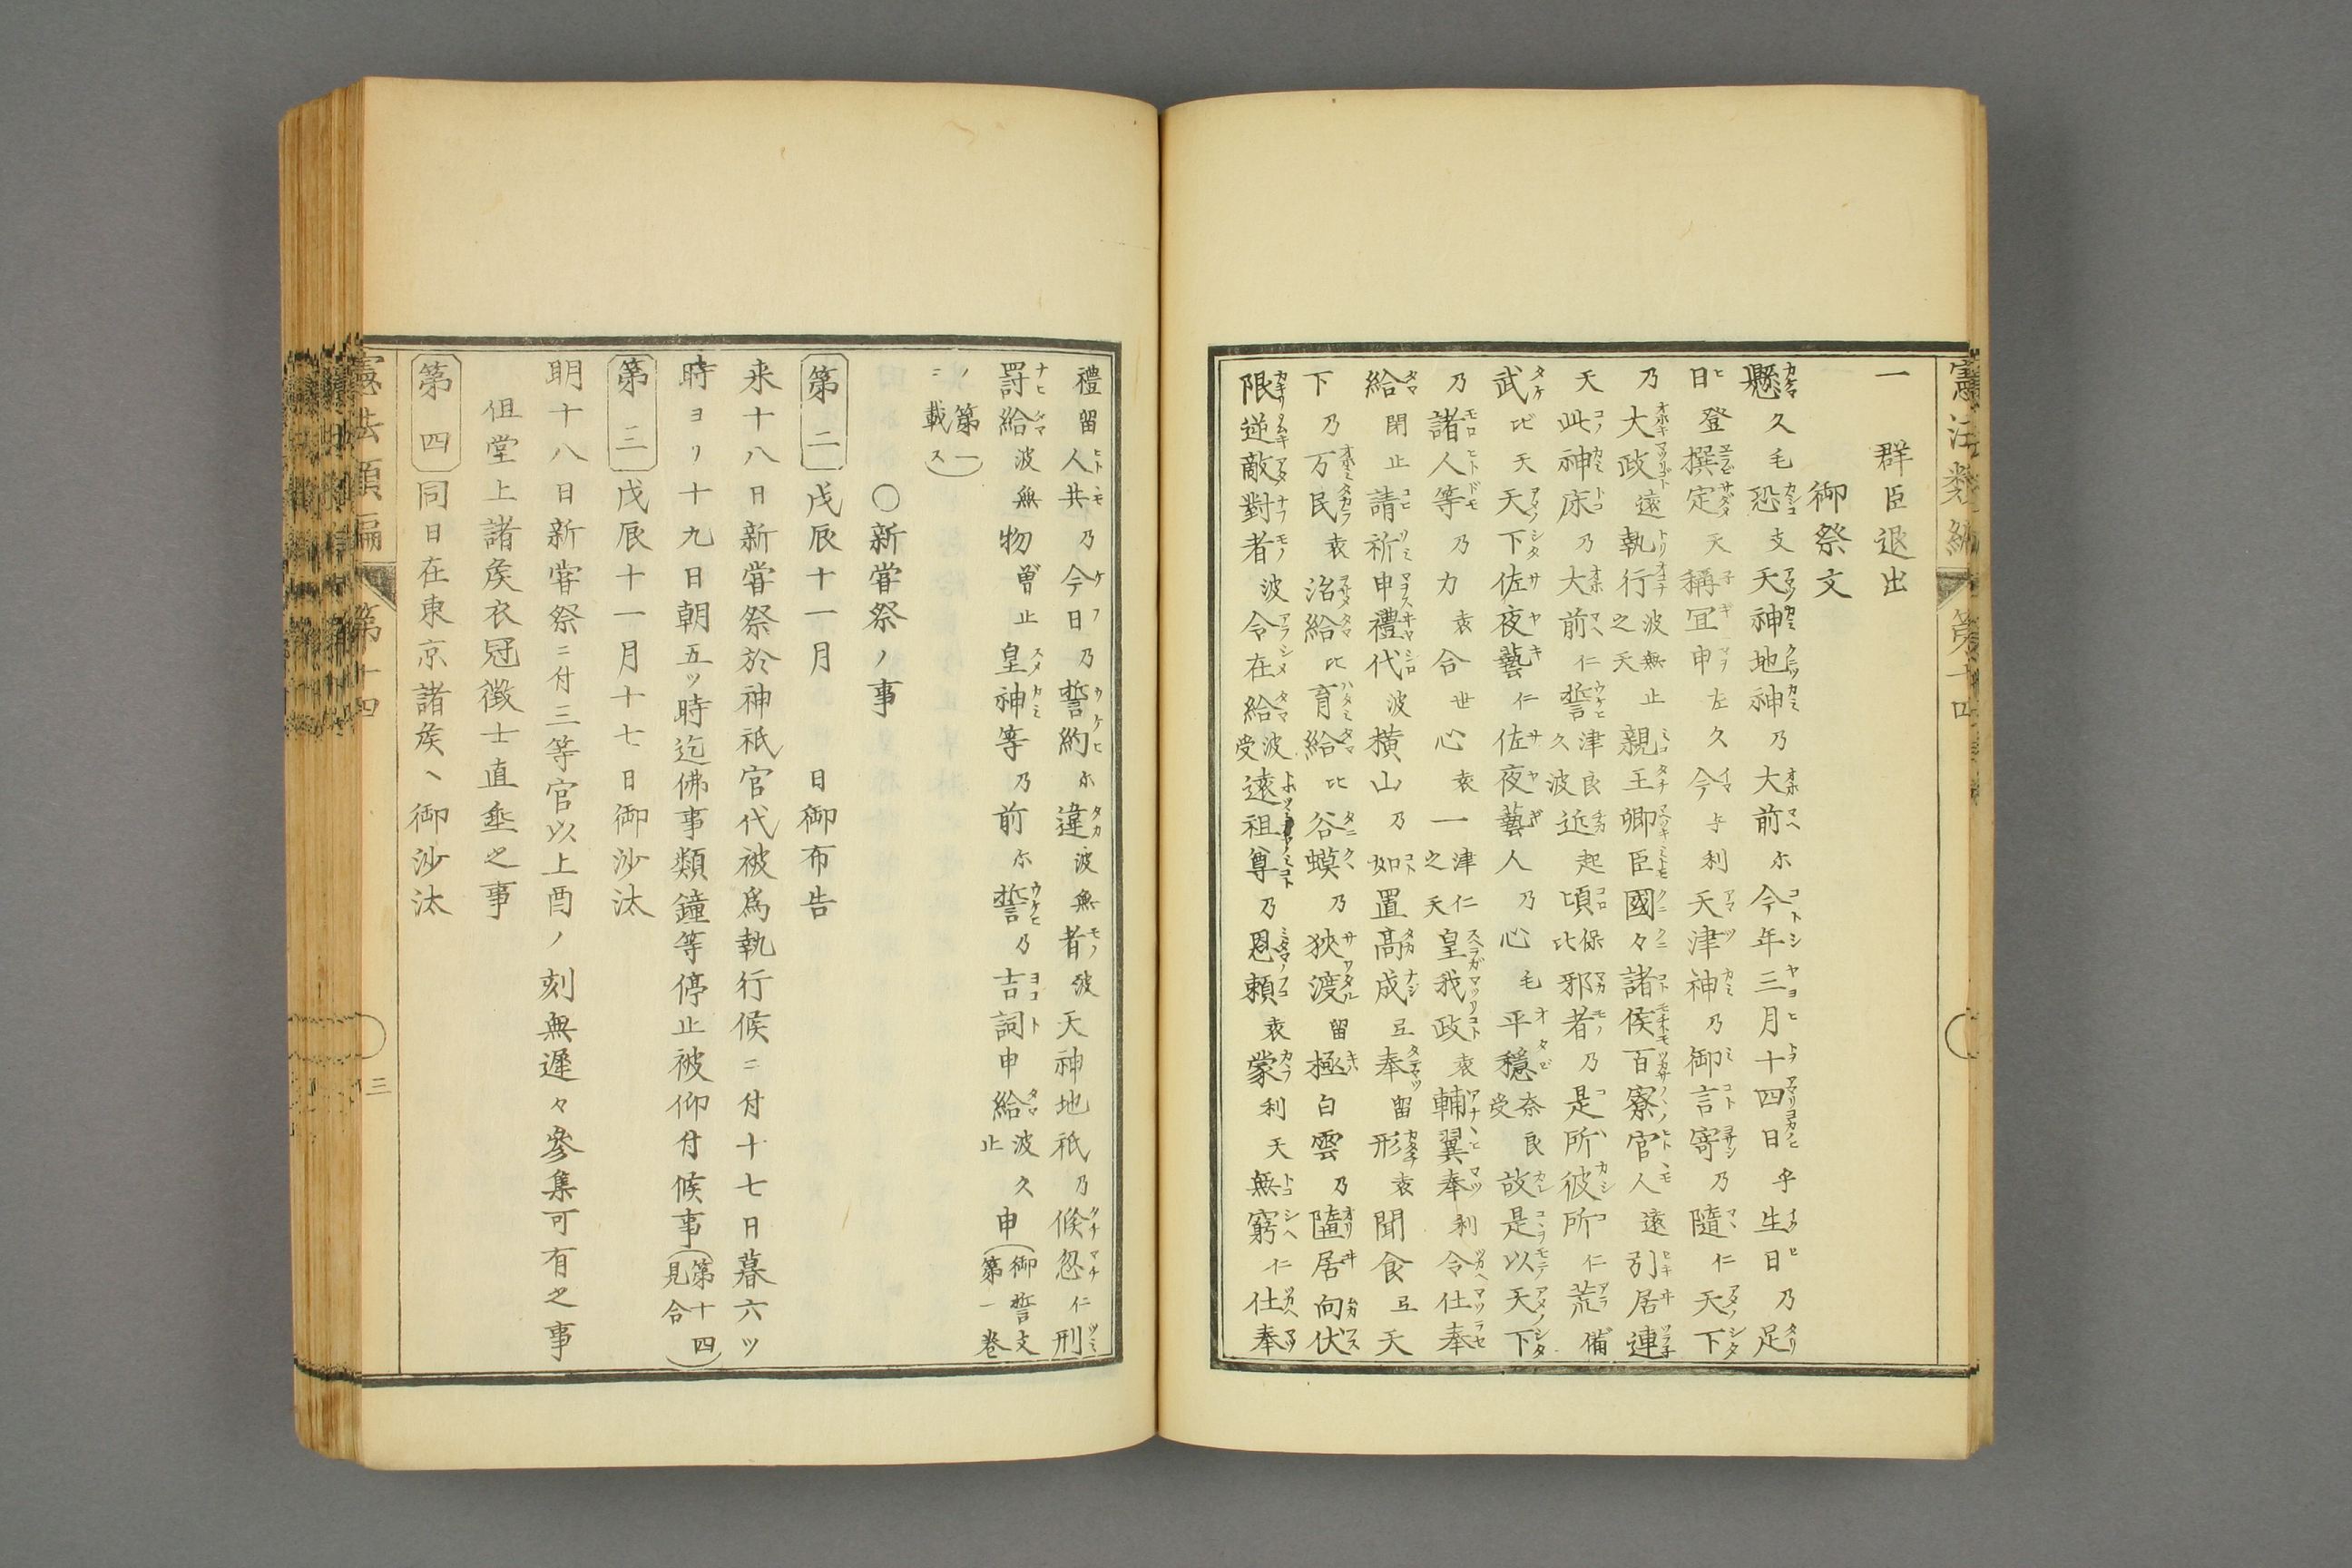 憲法類編 第十四
一 群臣退出
御祭文
懸久毛恐支天神地神乃大前尓今年三月十四日乎生日乃足
日登撰定天稱宜申左久今与利天津神乃御言寄乃隨仁天下
乃大政遠執行之波無止天親王卿臣國々諸侯百寮官人遠引居連
天此神床乃大前仁誓津良久波近起頃保比邪者乃是所彼所仁荒備
武比天天下佐夜藝仁佐夜藝人乃心毛平穏奈良受故是以天下
乃諸人等乃力袁合世心袁一津仁之天皇我政袁輔翼奉利令仕奉
給閉止請祈申禮代波横山乃如置高成弖奉留形袁聞食弖天
下乃万民袁治給比育給比谷蟆乃狹渡留極白雲乃墮居向伏
限逆敵對者波令在給波受遠祖尊乃恩頼袁蒙利天無窮仁仕奉
禮留人共乃今日乃誓約尓違波無者波天神地祇乃倏忽仁刑
罸給波無物曽止皇神等乃前尓誓乃吉詞申給波久止申(御誓文第一巻
ノ第一ニ載ス)
○新甞祭ノ事
第二 戊辰十一月 日御布告
来十八日新甞祭於神祇官代被爲執行候ニ付十七日暮六ツ
時ヨリ十九日朝五ツ時迄佛事類鐘等停止被仰付候事(第十四見合)
第三 戊辰十一月十七日御沙汰
明十八日新甞祭ニ付三等官以上酉ノ刻無遅々參集可有之事
但堂上諸矦衣冠徴士直垂之事
第四 同日在東京諸矦ヘ御沙汰
憲法類編 第十四 三